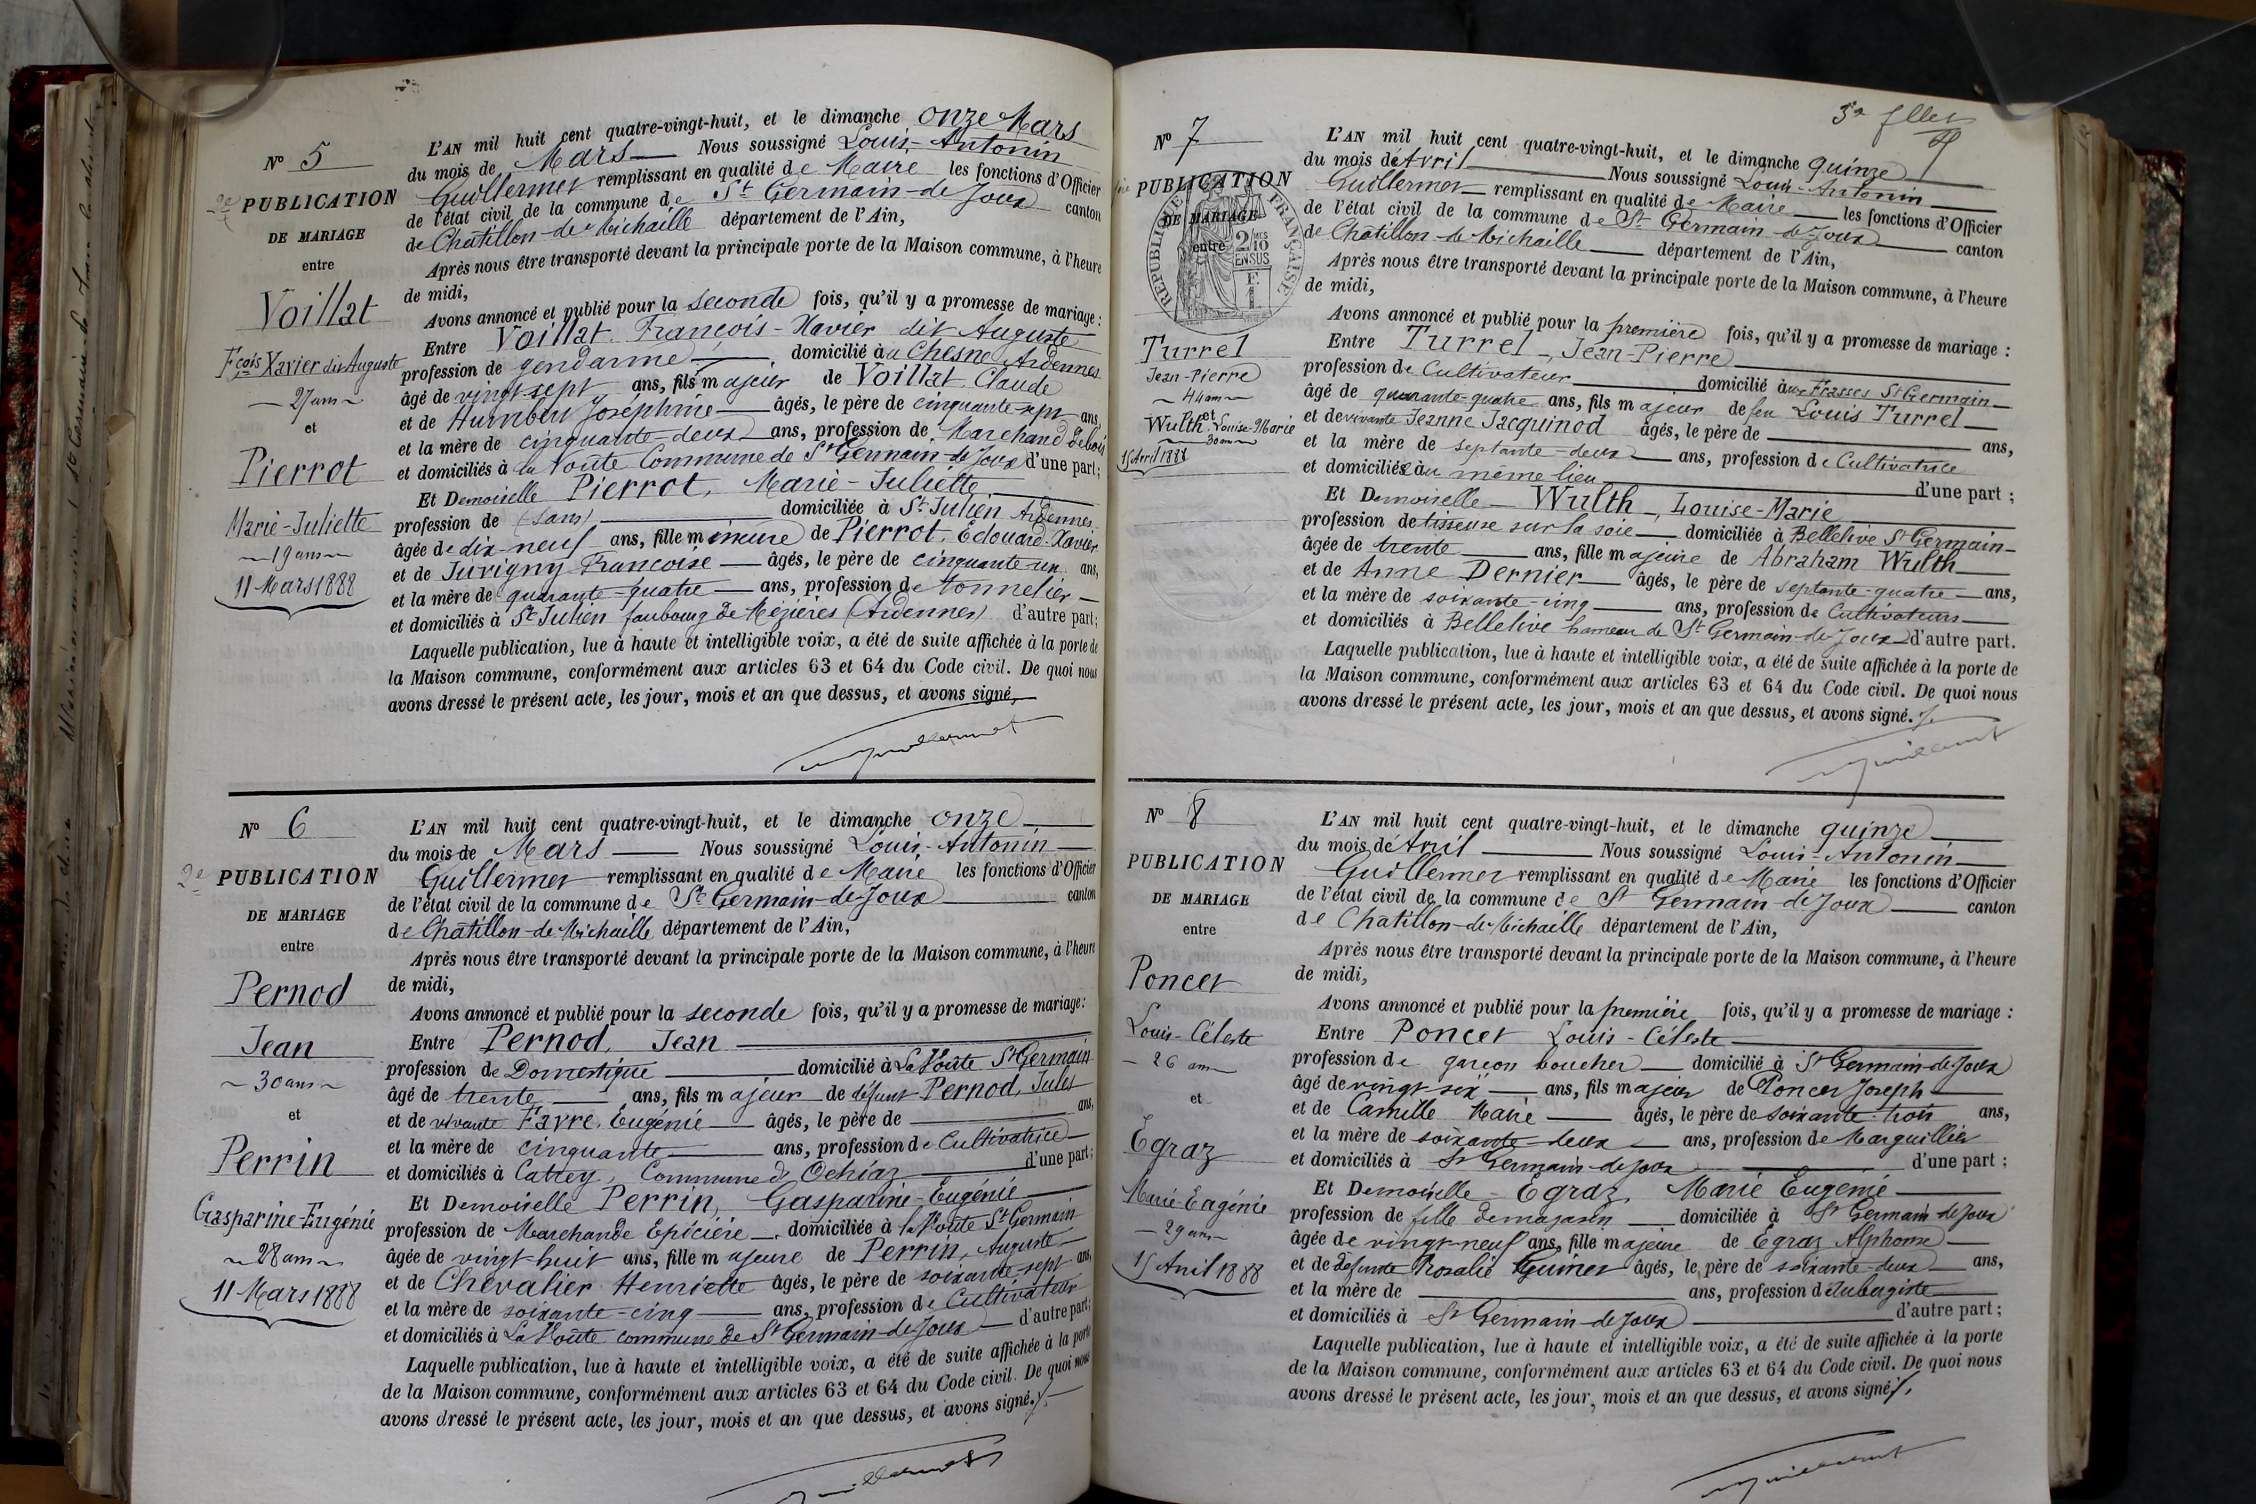 N° 5
2e PUBLICATION
DE MARIAGE
entre
Voillat
Fçois Xavier dit Auguste
27 ans
et
Pierrot
Marie-Juliette
19 ans
11 Mars 1888
L'AN mil huit cent quatre-vingt-huit, et le dimanche onze Mars
du mois de Mars Nous soussigné Louis-Antonin
Guillermet remplissant en qualité de Maire les fonctions d'Officier
de l'état civil de la commune de St Germain-de-Joux canton
de Chatillon-de-Michaille département de l'Ain,
Après nous être transporté devant la principale porte de la Maison commune, à l'heure
de midi,
Avons annoncé et publié pour la seconde fois, qu'il y a promesse de mariage :
Entre Voillat François-Xavier dit Auguste
profession de gendarme domicilié au Chesne Ardennes
âgé de vingt sept ans, fils majeur de Voillat Claude
et de Joséphine âgés, le père de cinquante-sept ans,
et la mère de cinquante-deux ans, profession de Marchand de bois
et domiciliés à la Voute Commune de St Germain-de-Joux d'une part;
Et Demoiselle Pierrot, Marie-Juliette
profession de (sans) domiciliée à St Julien Ardennes
âgée de dix-neuf ans, fille mineure de Pierrot, Edouard-Xavier
et de Juvigny Françoise âgés, le père de cinquante-un ans,
et la mère de quarante-quatre ans, profession de tonnelier
et domiciliés à St Julien faubourg de Mézières (Ardennes) d'autre part;
Laquelle publication, lue à haute et intelligible voix, a été de suite affichée à la porte de
la Maison commune, conformément aux articles 63 et 64 du Code civil. De quoi nous
avons dressé le présent acte, les jour, mois et an que dessus, et avons signé,
Guillermet
N° 6
2e PUBLICATION
DE MARIAGE
entre
Pernod
Jean
30 ans
et
Perrin
Gasparine-Eugénie
28 ans
11 Mars 1888
L'AN mil huit cent quatre-vingt-huit, et le dimanche onze
du mois de Mars Nous soussigné Louis-Antonin
Guillermet remplissant en qualité de Maire les fonctions d'Officier
de l'état civil de la commune de St Germain-de-Joux canton
de Chatillon-de-Michaille département de l'Ain,
Après nous être transporté devant la principale porte de la Maison commune, à l'heure
de midi,
Avons annoncé et publié pour la seconde fois, qu'il y a promesse de mariage:
Entre Pernod, Jean
profession de Domestique domicilié à La Voûte St Germain
âgé de trente ans, fils majeur de défunt Pernod, Jules
et de vivante Favre, Eugénie âgés, le père de ans,
et la mère de cinquante ans, profession de Cultivatrice
et domiciliés à Cattey, Commune d'Ochiaz d'une part;
Et Demoiselle Perrin, Gasparine-Eugénie
profession de Marchande Epicière domiciliée à la Voûte St Germain
âgée de vingt-huit ans, fille majeure de Perrin, Auguste
et de Chevalier Henriette âgés, le père de soixante-sept ans,
et la mère de soixante-cinq ans, profession de Cultivateur
et domiciliés à La Voûte commune de St Germain-de-Joux d'autre part;
Laquelle publication, lue à haute et intelligible voix, a été de suite affichée à la porte
de la Maison commune, conformément aux articles 63 et 64 du Code civil. De quoi nous
avons dressé le présent acte, les jour, mois et an que dessus, et avons signé.
Guillermet
N° 7
PUBLICATION
DE MARIAGE
entre
RÉPUBLIQUE FRANÇAISE
2/10 EN SUS
Turrel
Jean-Pierre
44 ans
et
Wulth Louise-Marie
30 ans
15 Avril 1888
L'AN mil huit cent quatre-vingt-huit, et le dimanche quinze
du mois d'Avril Nous soussigné Louis-Antonin
Guillermet remplissant en qualité de Maire les fonctions d'Officier
de l'état civil de la commune de St Germain-de-Joux canton
de Chatillon-de-Michaille département de l'Ain,
Après nous être transporté devant la principale porte de la Maison commune, à l'heure
de midi,
Avons annoncé et publié pour la première fois, qu'il y a promesse de mariage :
Entre Turrel, Jean-Pierre
profession de Cultivateur domicilié aux Frasses St Germain
âgé de quarante-quatre ans, fils majeur de feu Louis Turrel
et de vivante Jeanne Jacquinod âgés, le père de ans,
et la mère de septante-deux ans, profession de Cultivatrice
et domiciliée au même lieu d'une part ;
Et Demoiselle Wulth, Louise-Marie
profession de tisseuse sur la soie domiciliée à Bellelive St Germain
âgée de trente ans, fille majeure de Abraham Wulth
et de Anne Dernier âgés, le père de septante-quatre ans,
et la mère de soixante-cinq ans, profession de Cultivateurs
et domiciliés à Bellelive hameau de St Germain-de-Joux d'autre part.
Laquelle publication, lue à haute et intelligible voix, a été de suite affichée à la porte de
la Maison commune, conformément aux articles 63 et 64 du Code civil. De quoi nous
avons dressé le présent acte, les jour, mois et an que dessus, et avons signé.
Guillermet
N° 8
PUBLICATION
DE MARIAGE
entre
Poncet
Louis-Céleste
26 ans
et
Egraz
Marie-Eugénie
29 ans
15 Avril 1888
L'AN mil huit cent quatre-vingt-huit, et le dimanche quinze
du mois d'Avril Nous soussigné Louis-Antonin
Guillermet remplissant en qualité de Maire les fonctions d'Officier
de l'état civil de la commune de St Germain-de-Joux canton
de Chatillon-de-Michaille département de l'Ain,
Après nous être transporté devant la principale porte de la Maison commune, à l'heure
de midi,
Avons annoncé et publié pour la première fois, qu'il y a promesse de mariage :
Entre Poncet Louis-Céleste
profession de garçon boucher domicilié à St Germain-de-Joux
âgé de vingt six ans, fils majeur de Poncet Joseph
et de Camille Marie âgés, le père de soixante-trois ans,
et la mère de soixante-deux ans, profession de Marguillier
et domiciliés à St Germain-de-Joux d'une part ;
Et Demoiselle Egraz, Marie Eugénie
profession de fille de magasin domiciliée à St Germain-de-Joux
âgée de vingt-neuf ans, fille majeure de Egraz Alphonse
et de défunte Rosalie Guinet âgés, le père de soixante-deux ans,
et la mère de ans, profession d'Aubergiste
et domiciliés à St Germain-de-Joux d'autre part ;
Laquelle publication, lue à haute et intelligible voix, a été de suite affichée à la porte
de la Maison commune, conformément aux articles 63 et 64 du Code civil. De quoi nous
avons dressé le présent acte, les jour, mois et an que dessus, et avons signé.
Guillermet